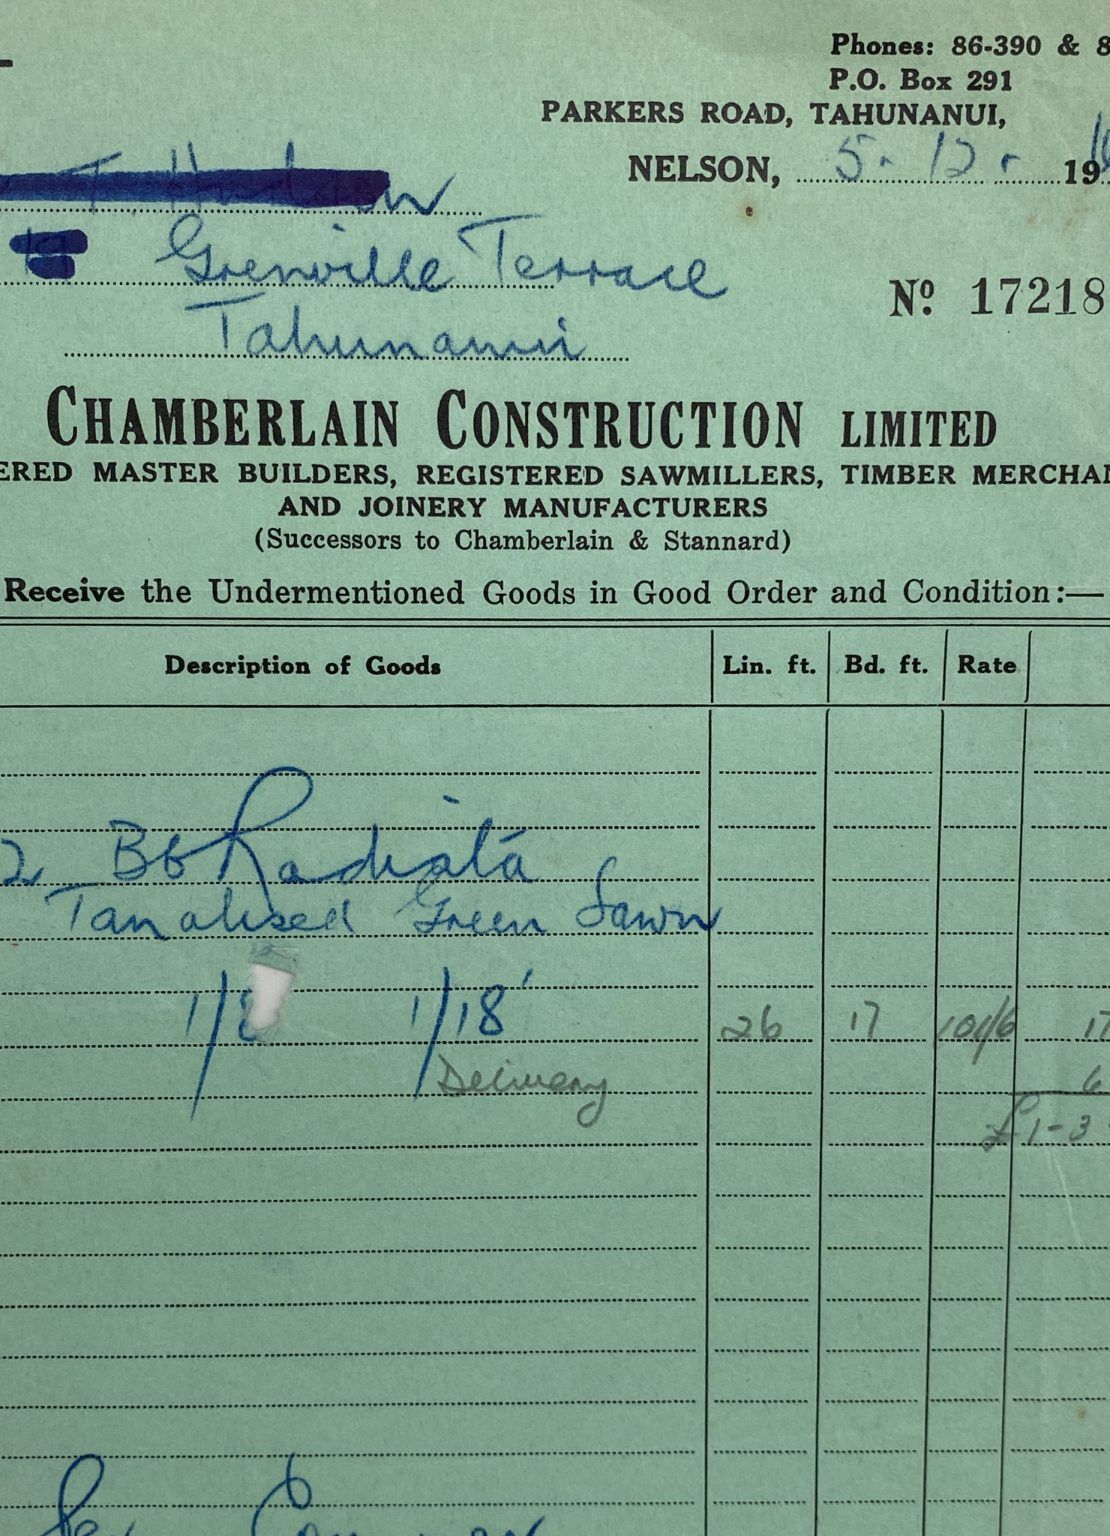 Phones: 86-390 & 8
P.O. Box 291
PARKERS ROAD, TAHUNANUI,
NELSON, 5. 12. 19
Grenville Terrace
Tahunanui
No. 17218
CHAMBERLAIN CONSTRUCTION LIMITED
ERED MASTER BUILDERS, REGISTERED SAWMILLERS, TIMBER MERCHAN
AND JOINERY MANUFACTURERS
(Successors to Chamberlain & Stannard)
Receive the Undermentioned Goods in Good Order and Condition:—
Description of Goods Lin. ft. Bd. ft. Rate
2 Bb Radiata
Tanalised Green Sawn
1/8 1/18' 26 17 100/6 17
Delivery 6
£1-3